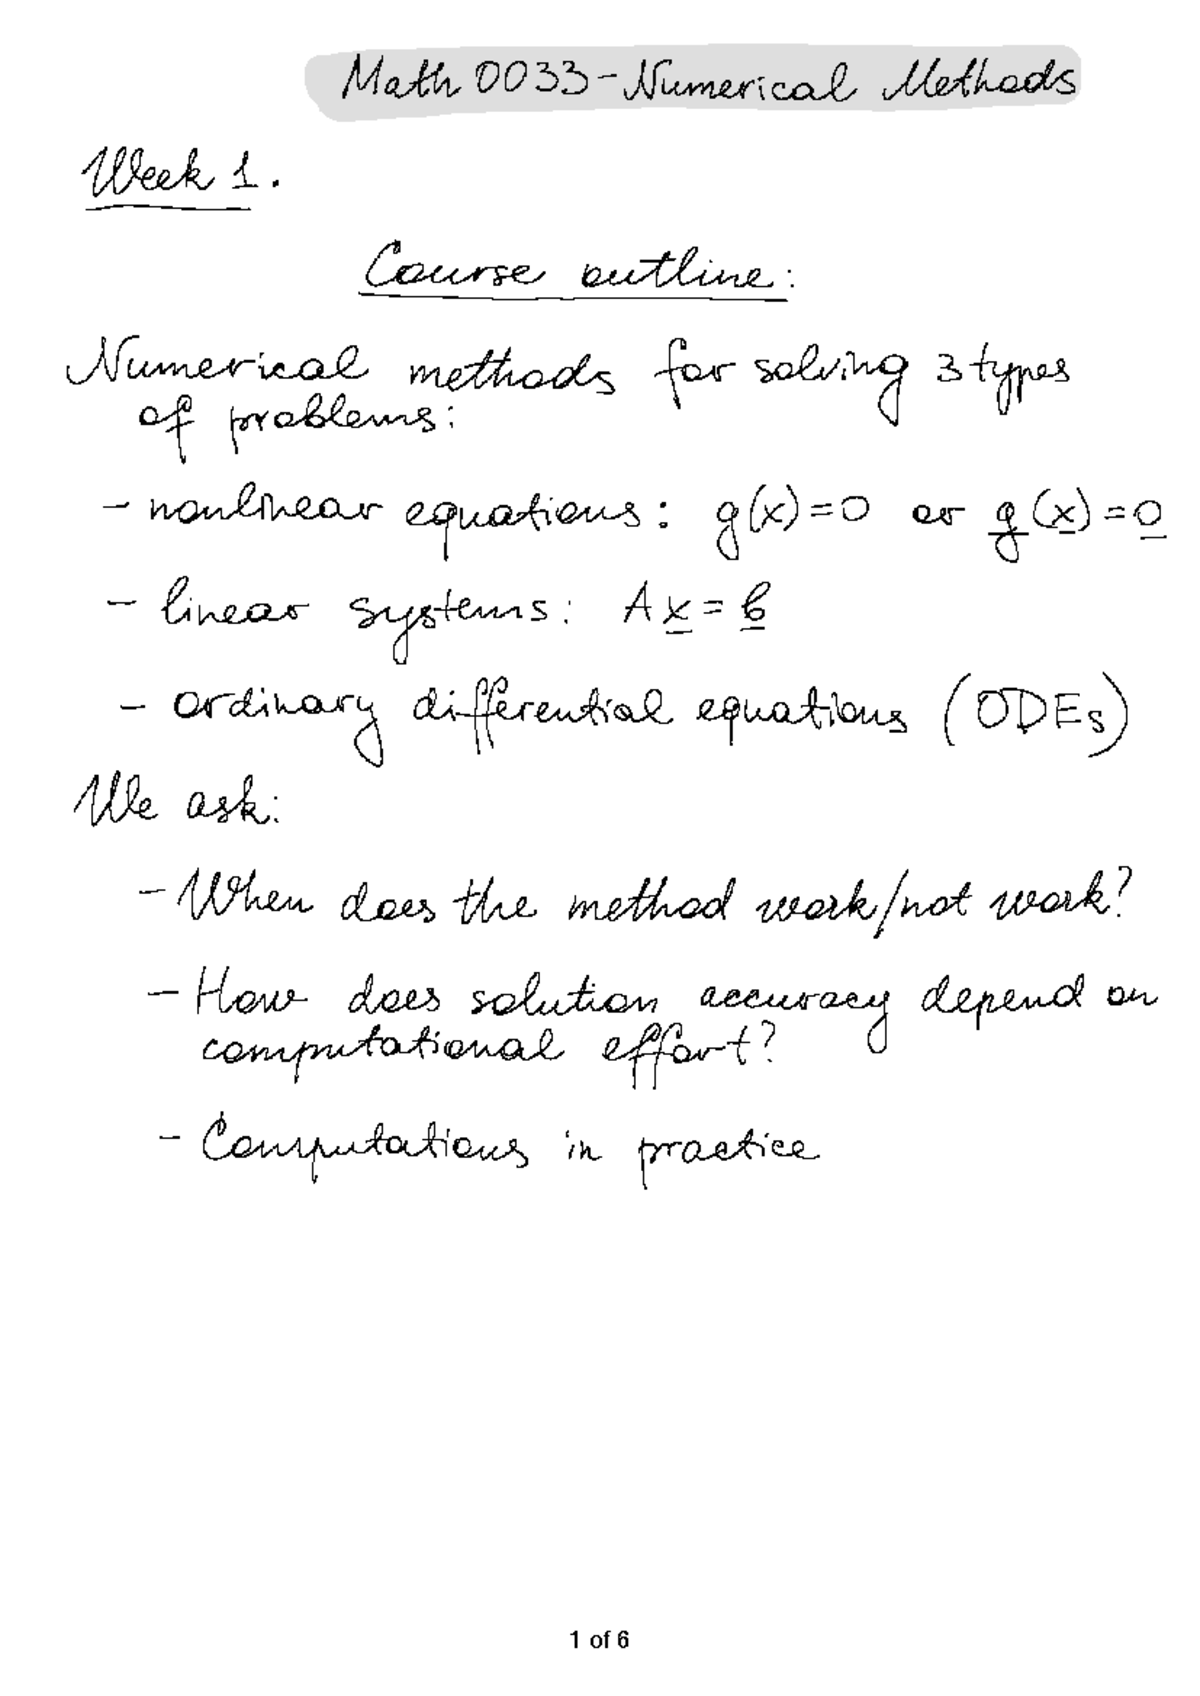 Math 0033 - Numerical Methods
Week 1.
Course outline:
Numerical methods for solving 3 types
of problems:
- nonlinear equations: g(x)=0 or g(x)=0
- linear systems: Ax=b
- ordinary differential equations (ODEs)
We ask:
- When does the method work/not work?
- How does solution accuracy depend on
computational effort?
- Computations in practice
1 of 6